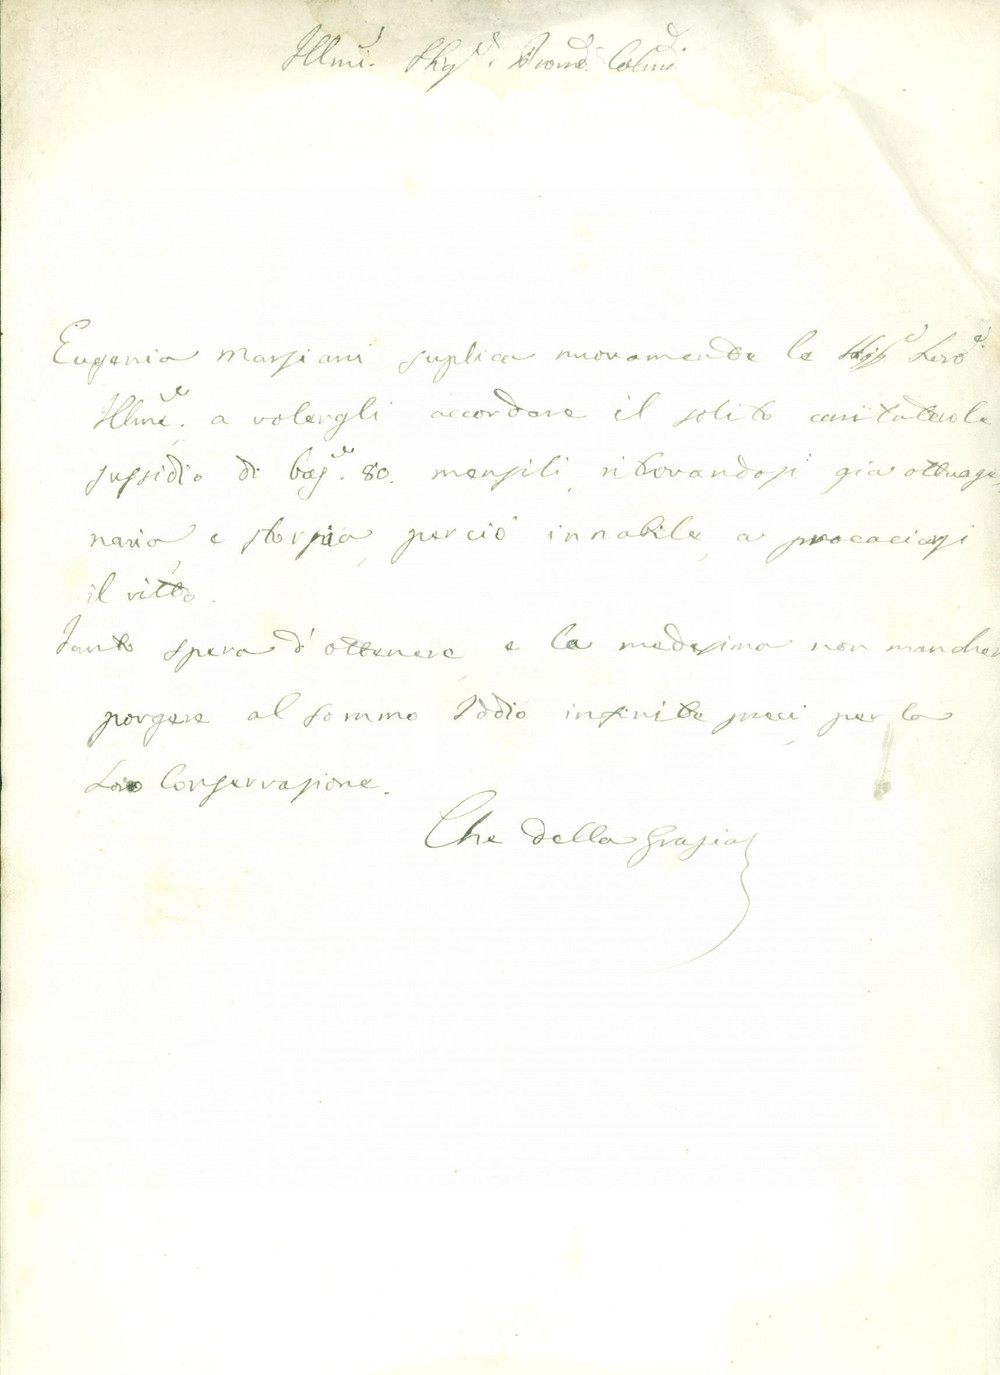 Illmi. Sigri. Prondi Colmi
Eugenia Marsiani suplica nuovamente le Sigie Loro
Illme. a volergli accordare il solito caritatevole
sussidio di baj. 80. mensili, ritrovandosi già ottuage,
naria e storpia, perciò innabile, a procaciarsi
il vitto.
Tanto spera d'ottenere e la medesima non mancher
porgere al Sommo Iddio infinite preci, per la
Loro Conservasione.
Che della Grasia